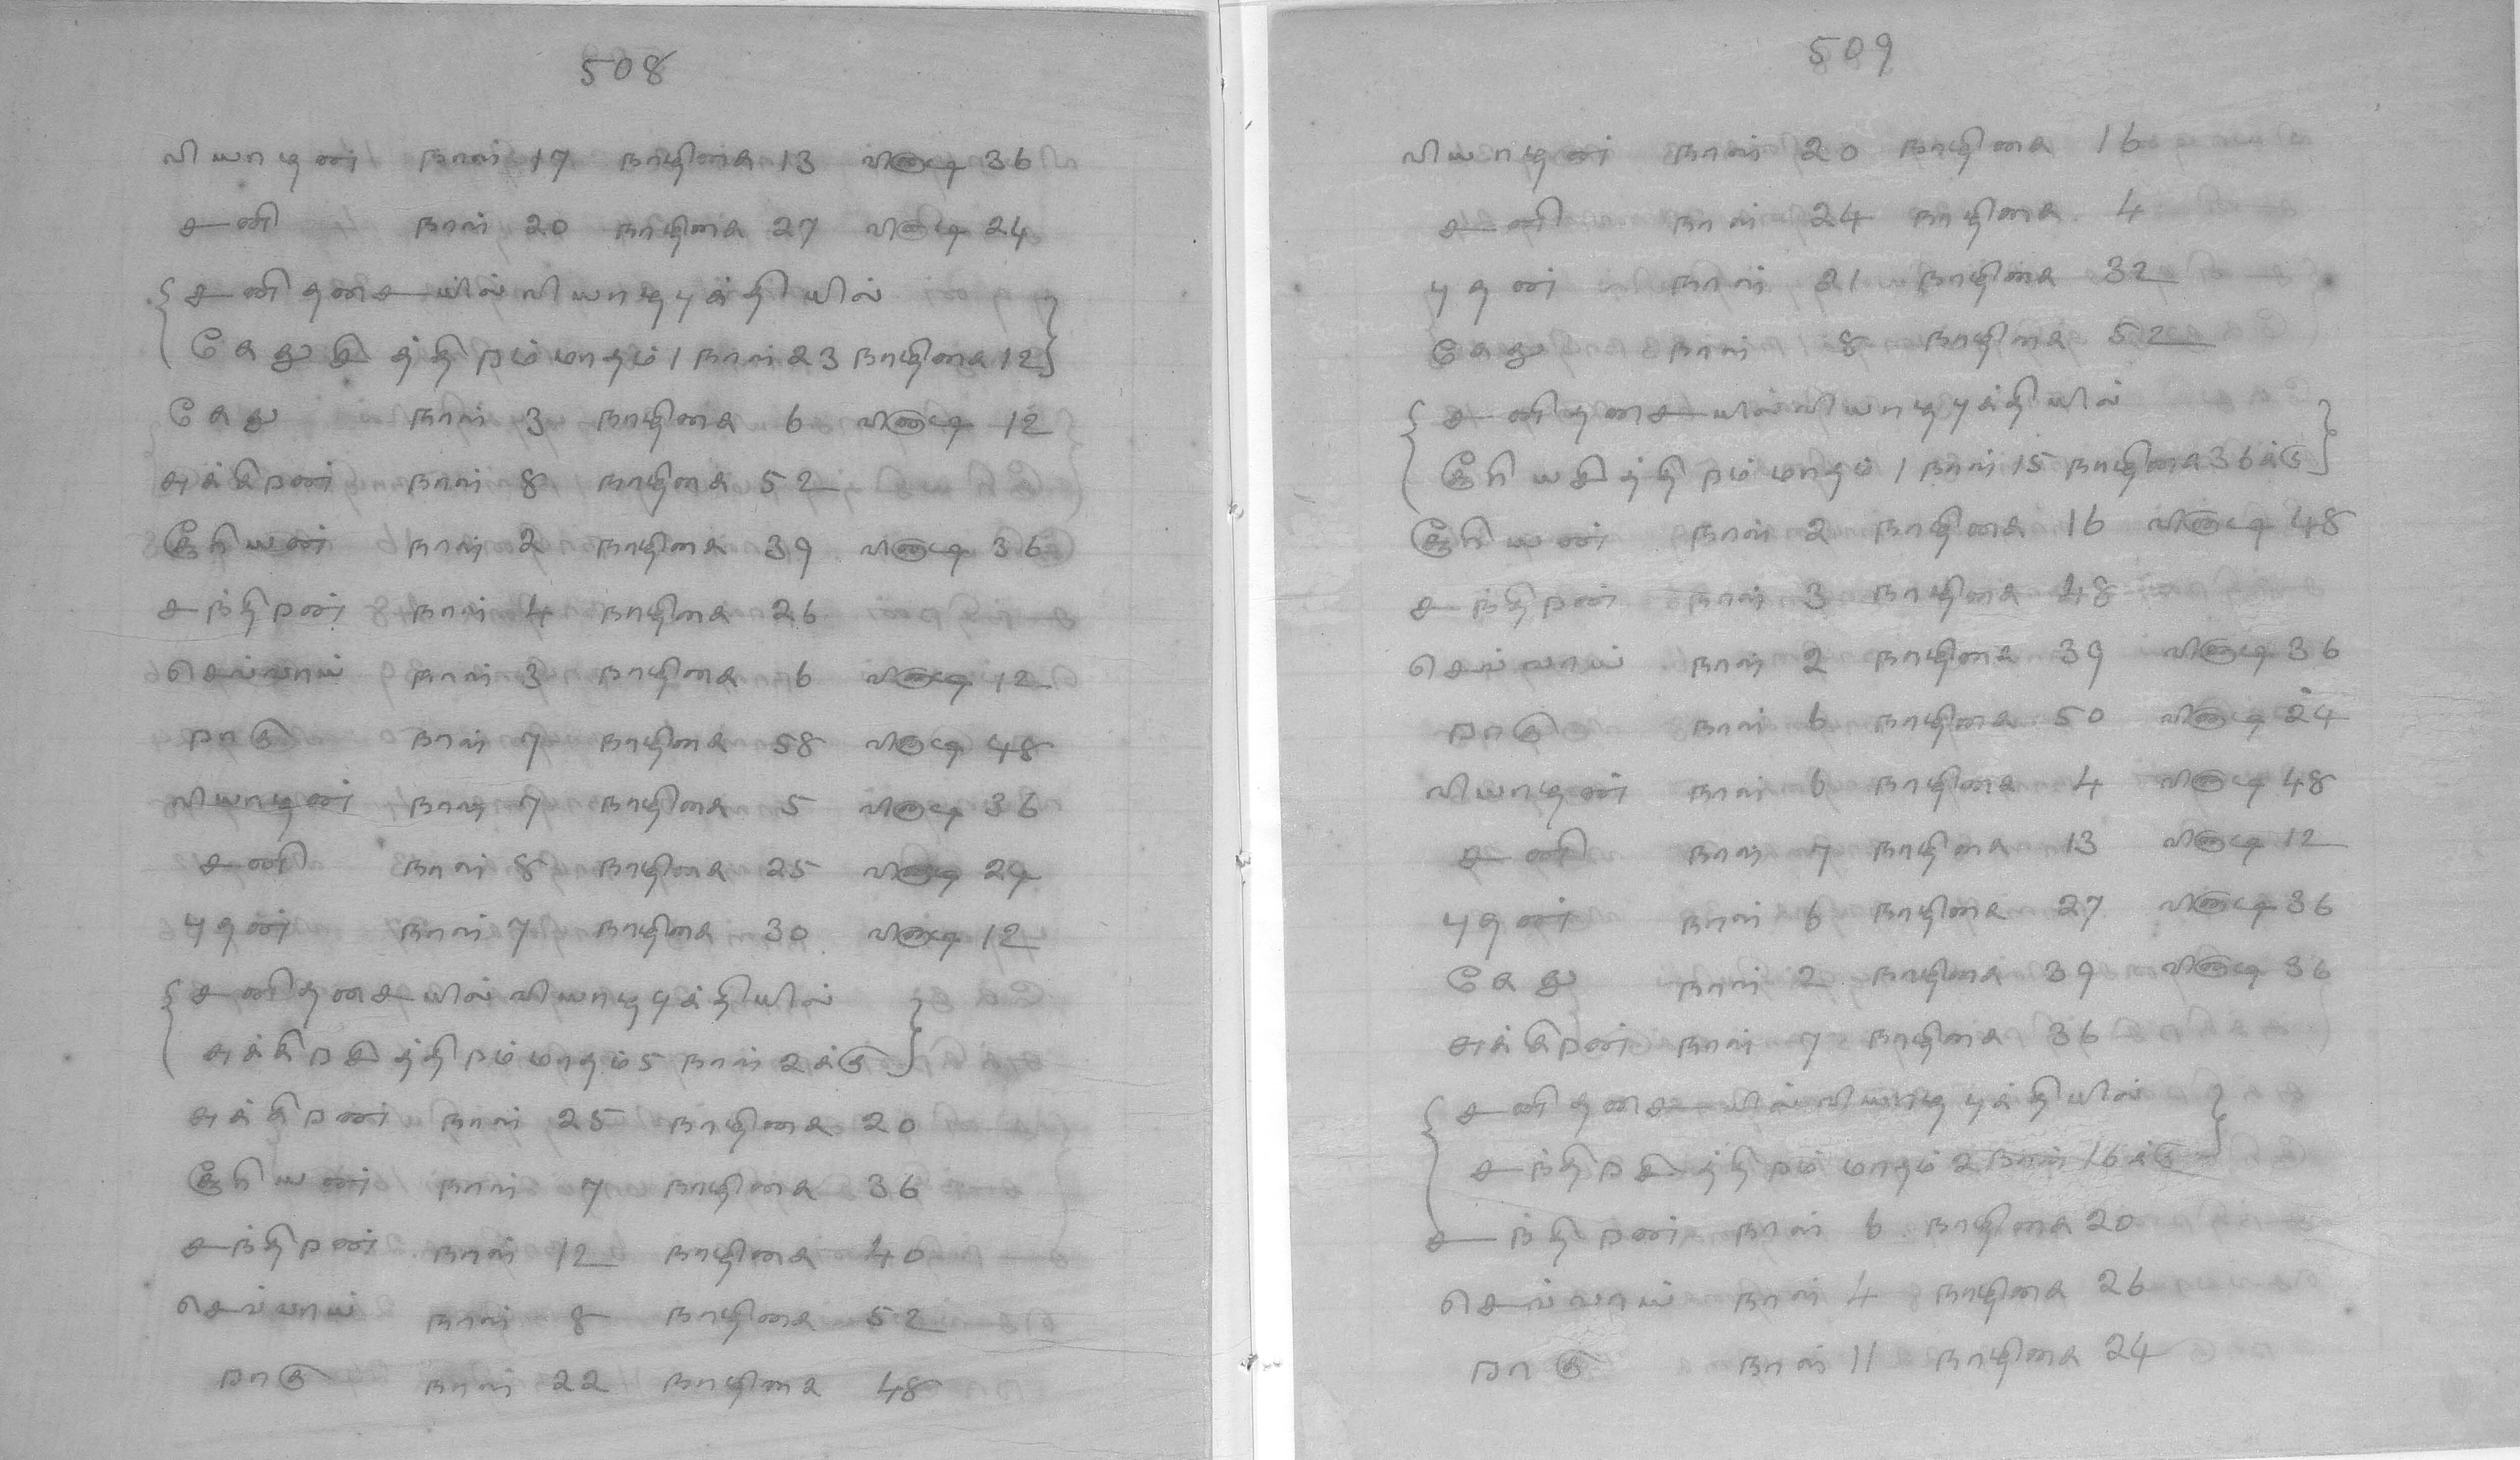 508
வியாழன் நாள் 17 நாழிகை 13 விநாடி 36
சனி நாள் 20 நாழிகை 27 விநாடி 24
{ சனிதசையில் வியாழபுக்தியில்
{ கேதுசித்திரம் மாதம் 1 நாள் 23 நாழிகை 12 }
கேது நாள் 3 நாழிகை 6 விநாடி 12
சுக்கிரன் நாள் 8 நாழிகை 52
சூரியன் நாள் 2 நாழிகை 39 விநாடி 36
சந்திரன் நாள் 4 நாழிகை 26
செவ்வாய் நாள் 3 நாழிகை 6 விநாடி 12
ராகு நாள் 7 நாழிகை 58 விநாடி 48
வியாழன் நாள் 7 நாழிகை 5 விநாடி 36
சனி நாள் 8 நாழிகை 25 விநாடி 24
புதன் நாள் 7 நாழிகை 30 விநாடி 12
{ சனிதசையில் வியாழபுக்தியில்
{ சுக்கிரசித்திரம் மாதம் 5 நாள் 2க்கு }
சுக்கிரன் நாள் 25 நாழிகை 20
சூரியன் நாள் 7 நாழிகை 36
சந்திரன் நாள் 12 நாழிகை 40
செவ்வாய் நாள் 8 நாழிகை 52
ராகு நாள் 22 நாழிகை 48
509
வியாழன் நாள் 20 நாழிகை 16
சனி நாள் 24 நாழிகை 4
புதன் நாள் 21 நாழிகை 32
கேது நாள் 8 நாழிகை 52
{ சனிதசையில் வியாழபுக்தியில்
{ சூரியசித்திரம் மாதம் 1 நாள் 15 நாழிகை 36க்கு }
சூரியன் நாள் 2 நாழிகை 16 விநாடி 48
சந்திரன் நாள் 3 நாழிகை 48
செவ்வாய் நாள் 2 நாழிகை 39 விநாடி 36
ராகு நாள் 6 நாழிகை 50 விநாடி 24
வியாழன் நாள் 6 நாழிகை 4 விநாடி 48
சனி நாள் 7 நாழிகை 13 விநாடி 12
புதன் நாள் 6 நாழிகை 27 விநாடி 36
கேது நாள் 2 நாழிகை 39 விநாடி 36
சுக்கிரன் நாள் 7 நாழிகை 36
{ சனிதசையில் வியாழபுக்தியில்
{ சந்திரசித்திரம் மாதம் 2 நாள் 16க்கு }
சந்திரன் நாள் 6 நாழிகை 20
செவ்வாய் நாள் 4 நாழிகை 26
ராகு நாள் 11 நாழிகை 24